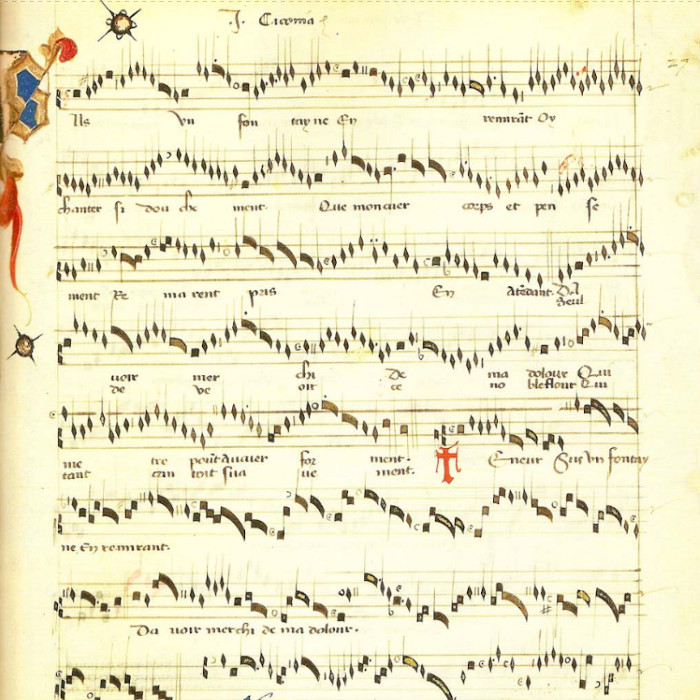 J. Ciconia
us vn fon tayne En remirant Oy
chanter si dou che ment. Que mon cuer corps et pen se
ment Re ma nent pris En Atendant. Da
Seul
uoir mer chi De ma dolour Qui
de ve oir ce no ble flour Qui
me tre pour for ment.
tant can toit sua ue ment.
T Eneur Sus vn fontay
ne En remirant.
Da uoir merchi de ma dolour.